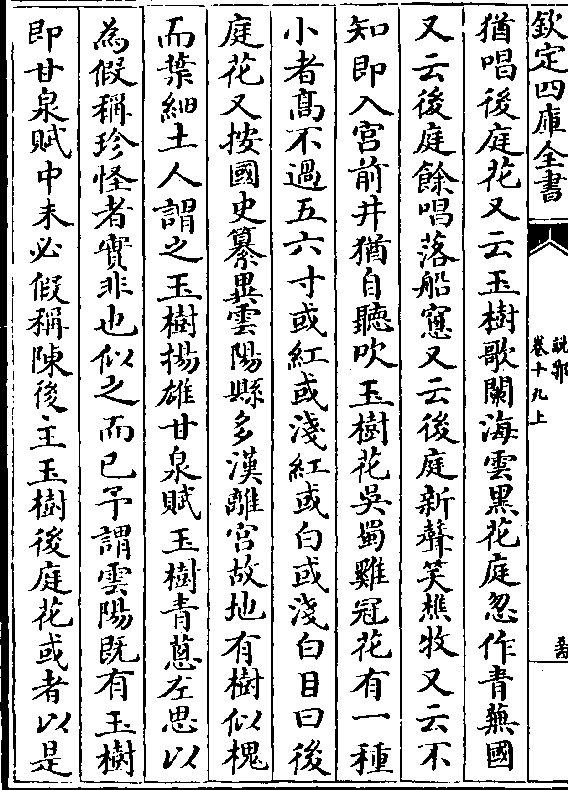 欽定四庫全書
說郛
卷十九上
猶唱後庭花又云玉樹歌闌海雲黑花庭忽作青蕪國
又云後庭餘唱落船窓又云後庭新聲笑樵牧又云不
知即入宮前井猶自聽吹玉樹花吳蜀雞冠花有一種
小者高不過五六寸或紅或淺紅或白或淺白目曰後
庭花又按國史纂異雲陽縣多漢離宮故地有樹似槐
而葉細土人謂之玉樹揚雄甘泉賦玉樹青蔥左思以
為假稱珍怪者實非也似之而已予謂雲陽既有玉樹
即甘泉賦中未必假稱陳後主玉樹後庭花或者以是